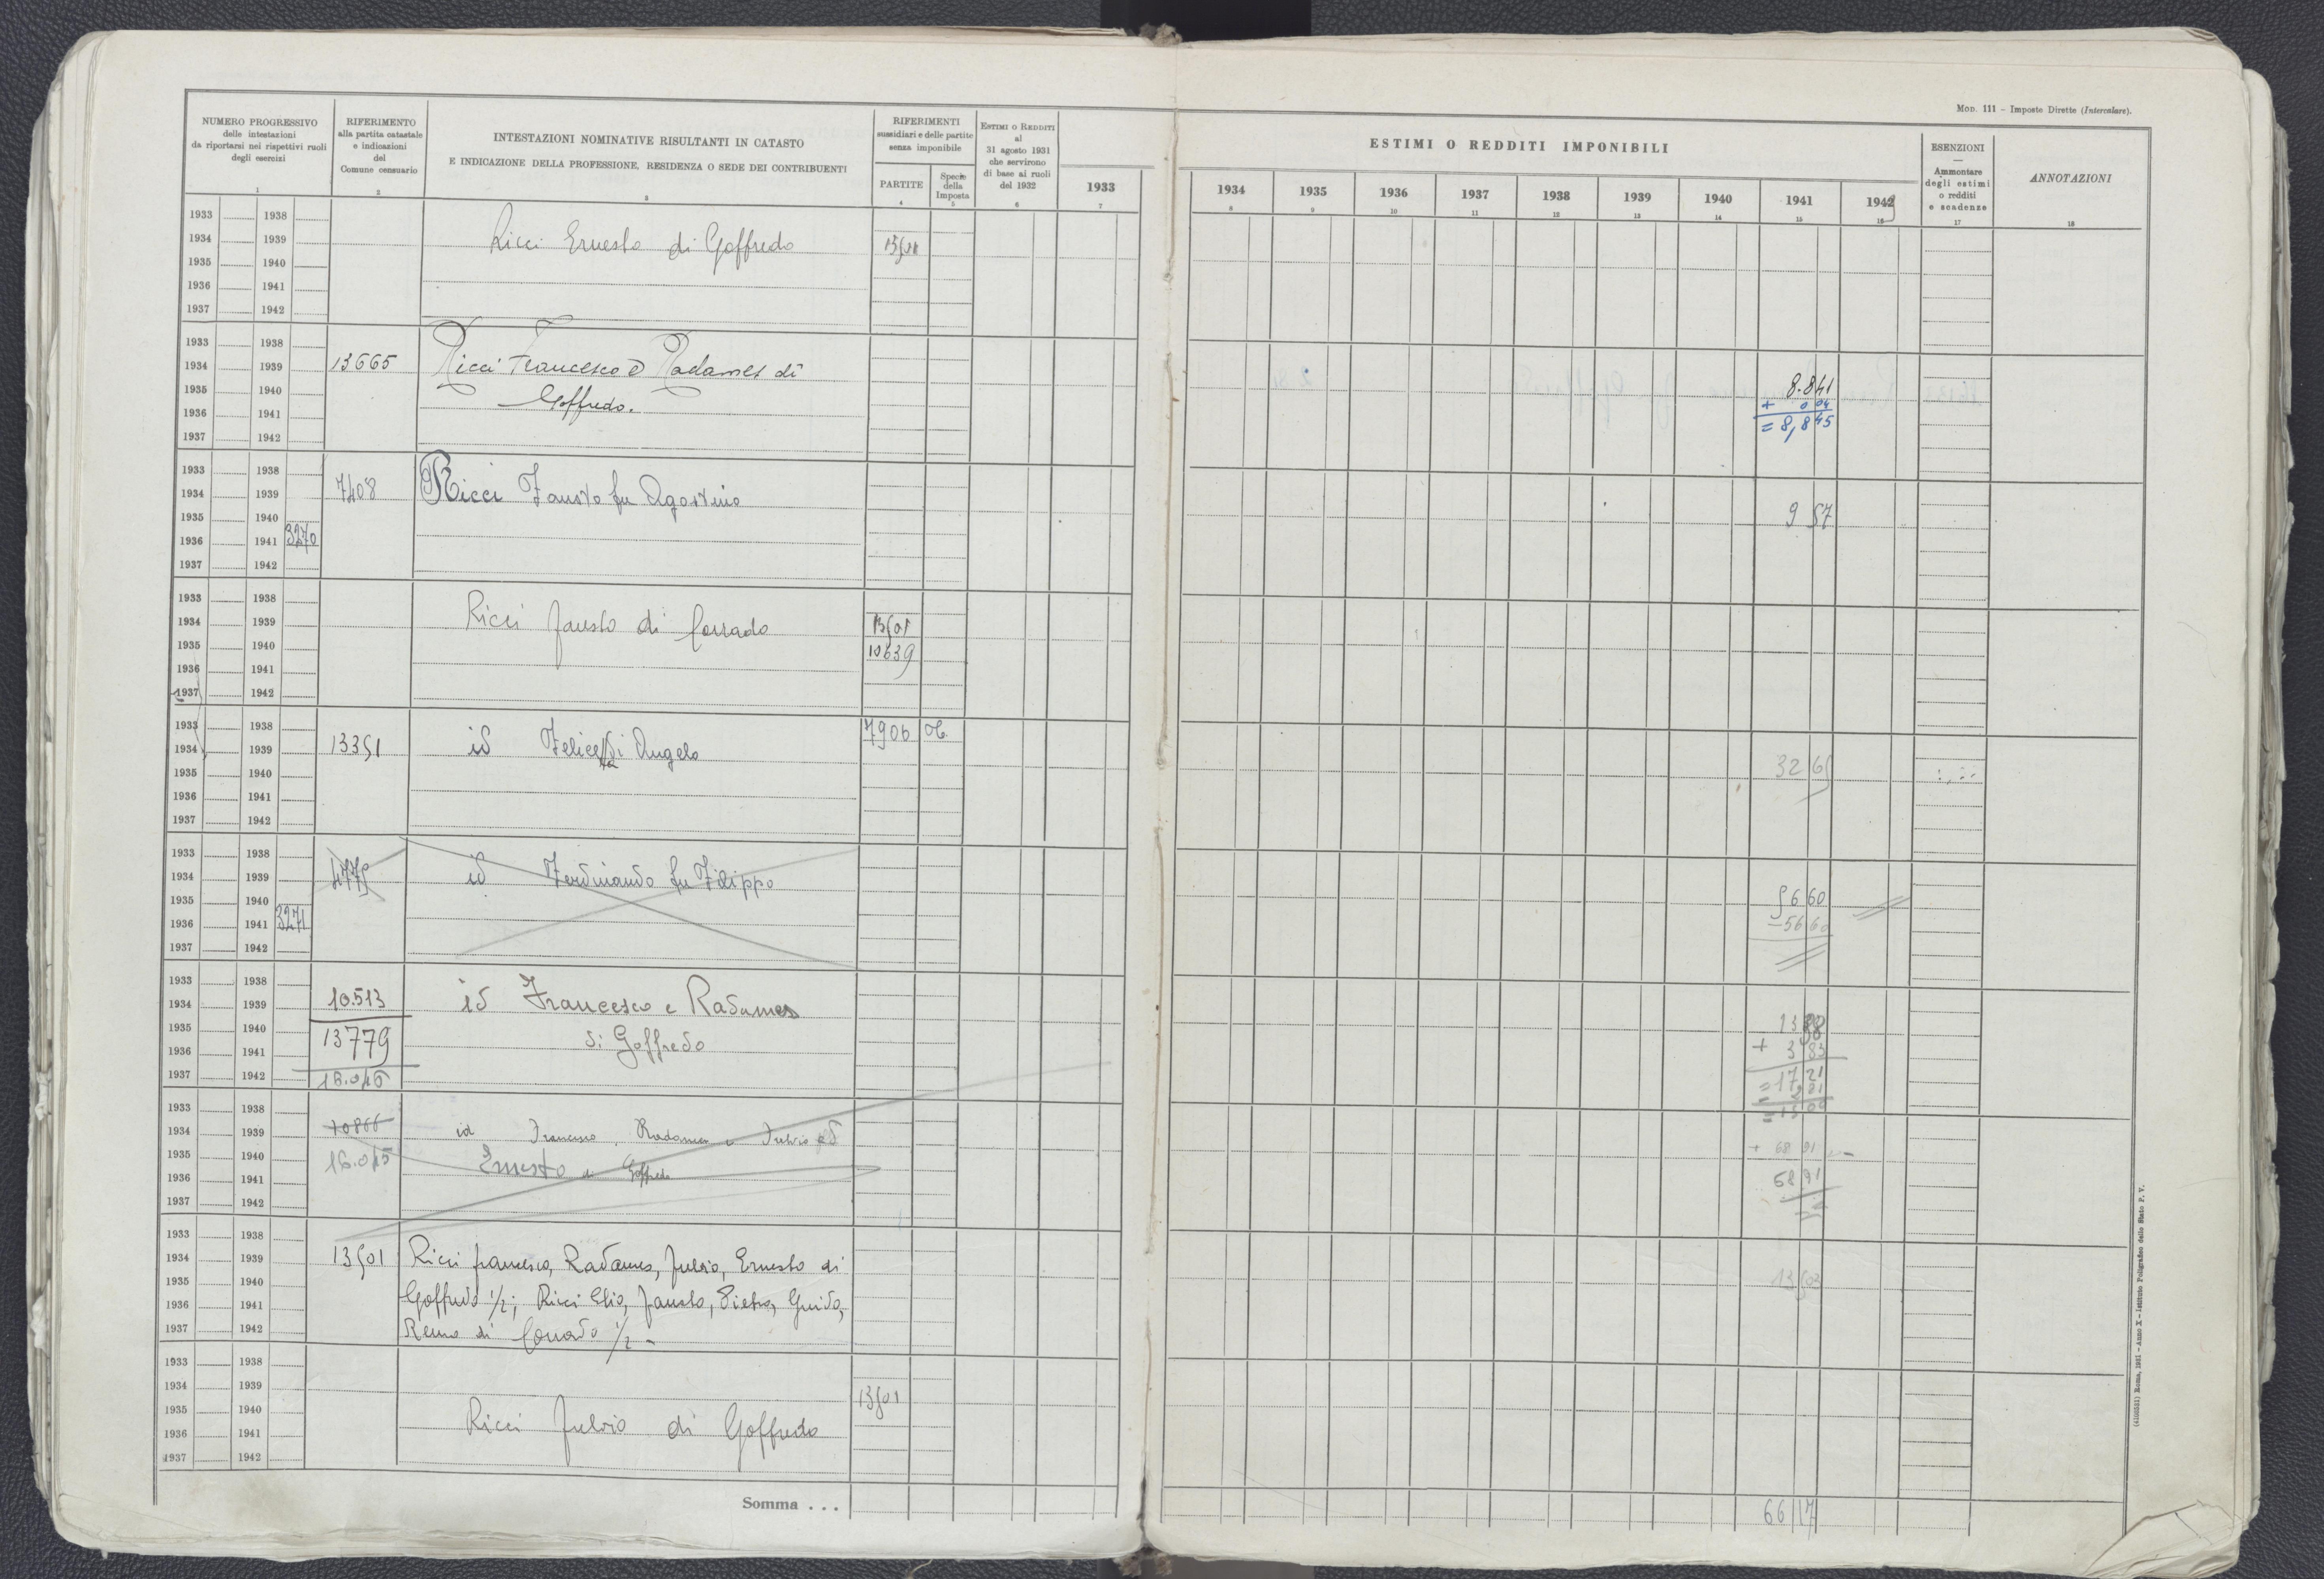 Mod. 111 - Imposte Dirette (Intercalare).
NUMERO PROGRESSIVO
delle intestazioni
da riportarsi nei rispettivi ruoli
degli esercizi
1
RIFERIMENTO
alla partita catastale
e indicazioni
del
Comune censuario
2
INTESTAZIONI NOMINATIVE RISULTANTI IN CATASTO
E INDICAZIONE DELLA PROFESSIONE, RESIDENZA O SEDE DEI CONTRIBUENTI
3
RIFERIMENTI
sussidiari e delle partite
senza imponibile
PARTITE
4
Specie
della
Imposta
5
ESTIMI O REDDITI
al
31 agosto 1931
che servirono
di base ai ruoli
del 1932
6
1933
7
ESTIMI O REDDITI IMPONIBILI
1934 1935 1936 1937 1938 1939 1940 1941 1942
8 9 10 11 12 13 14 15 16
ESENZIONI
Ammontare
degli estimi
o redditi
e scadenze
17
ANNOTAZIONI
18
1933 1938
1934 1939 Ricci Ernesto di Goffredo
1935 1940
1936 1941
1937 1942
1933 1938
1934 1939 13665 Ricci Francesco e Radames di
1935 1940 8.841
1936 1941 Goffredo. + 0 04
1937 1942 = 8,845
1933 1938
1934 1939 7408 Ricci Fausto fu Agostino
1935 1940 9 57
1936 1941 3270
1937 1942
1933 1938
1934 1939 Ricci Fausto di Corrado 13501
1935 1940 10639
1936 1941
1937 1942
1933 1938 7906
1934 1939 13351 id Felice di Angelo
1935 1940 32 65
1936 1941
1937 1942
1933 1938
1934 1939 4775 id Ferdinando fu Filippo
1935 1940 56 60
1936 1941 3271 -56 60
1937 1942
1933 1938
1934 1939 10.513 id Francesco e Radames
1935 1940 13779 di Goffredo 13 38
1936 1941 + 3 83
1937 1942 16.015 = 17 21
1933 1938
1934 1939 10866 id Francesco, Radames e Fulvio ed
1935 1940 16.015 Ernesto di Goffredo + 68 91
1936 1941 68 91
1937 1942
1933 1938
1934 1939 13501 Ricci Francesco, Radames, Fulvio, Ernesto di
1935 1940
1936 1941 Goffredo 1/2; Ricci Elio, Fausto, Pietro, Guido,
1937 1942 Remo di Corrado 1/2 -
1933 1938
1934 1939 13501
1935 1940 Ricci Fulvio di Goffredo
1936 1941
1937 1942
Somma . . . 66 17
(4100551) Roma, 1931 - Anno X - Istituto Poligrafico dello Stato P. V.